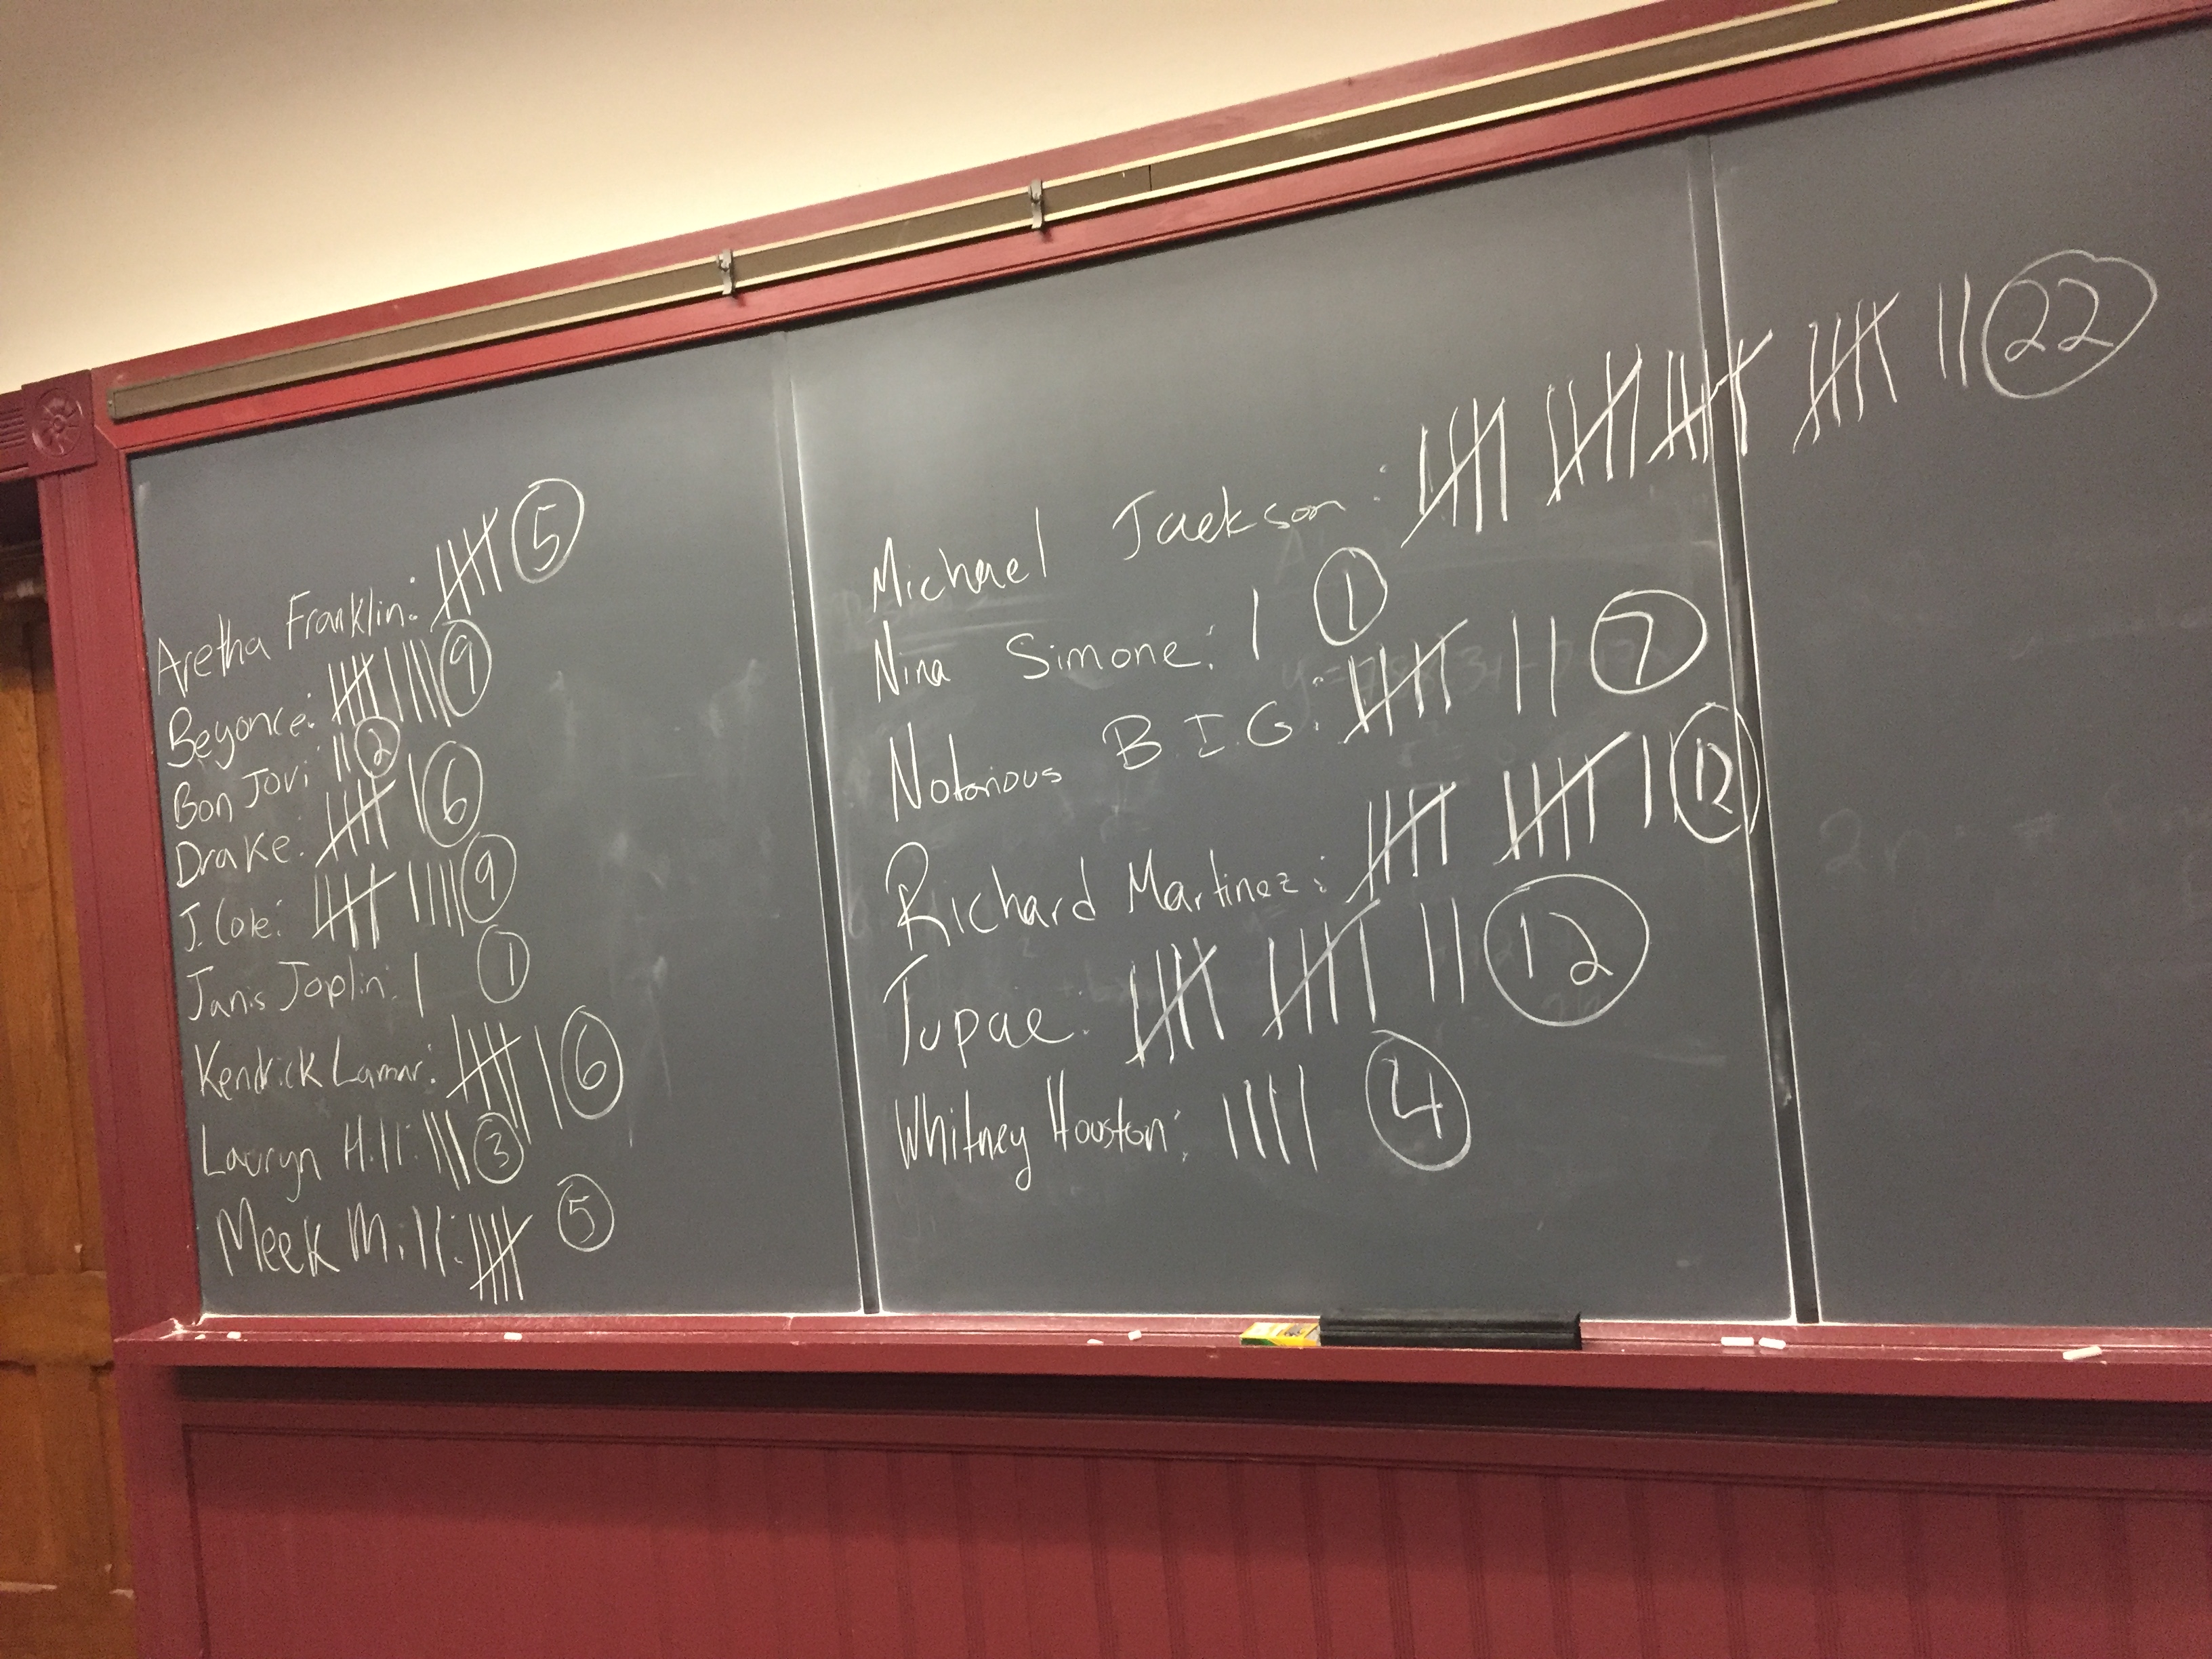 Aretha Franklin: 5
Beyonce: 9
Bon Jovi 2
Drake: 6
J. Cole: 9
Janis Joplin: 1
Kendrick Lamar: 6
Lauryn Hill: 3
Meek Mill: 5
Michael Jackson: 22
Nina Simone: 1
Notorious B.I.G: 7
Richard Martinez: 12
Tupac: 12
Whitney Houston: 4